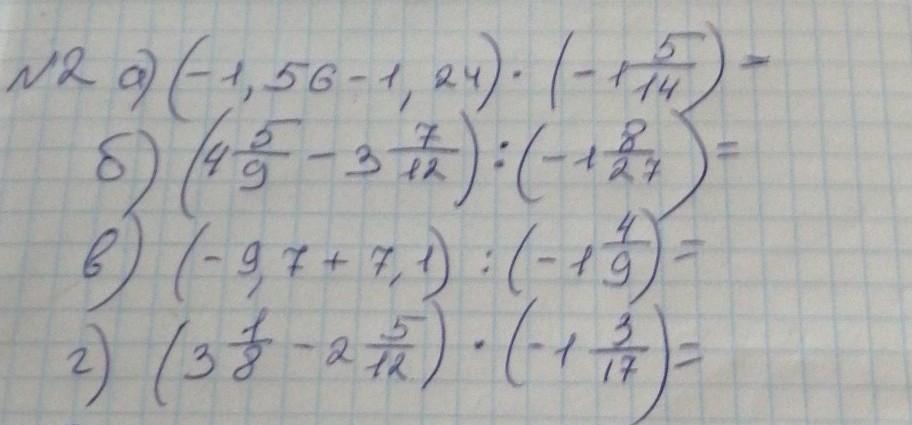 №2 а) (-1,56-1,24)·(-1 5/14)=
б) (4 5/9 - 3 7/12):(-1 8/27)=
в) (-9,7+7,1):(-1 4/9)=
г) (3 1/8 - 2 5/12)·(-1 3/17)=